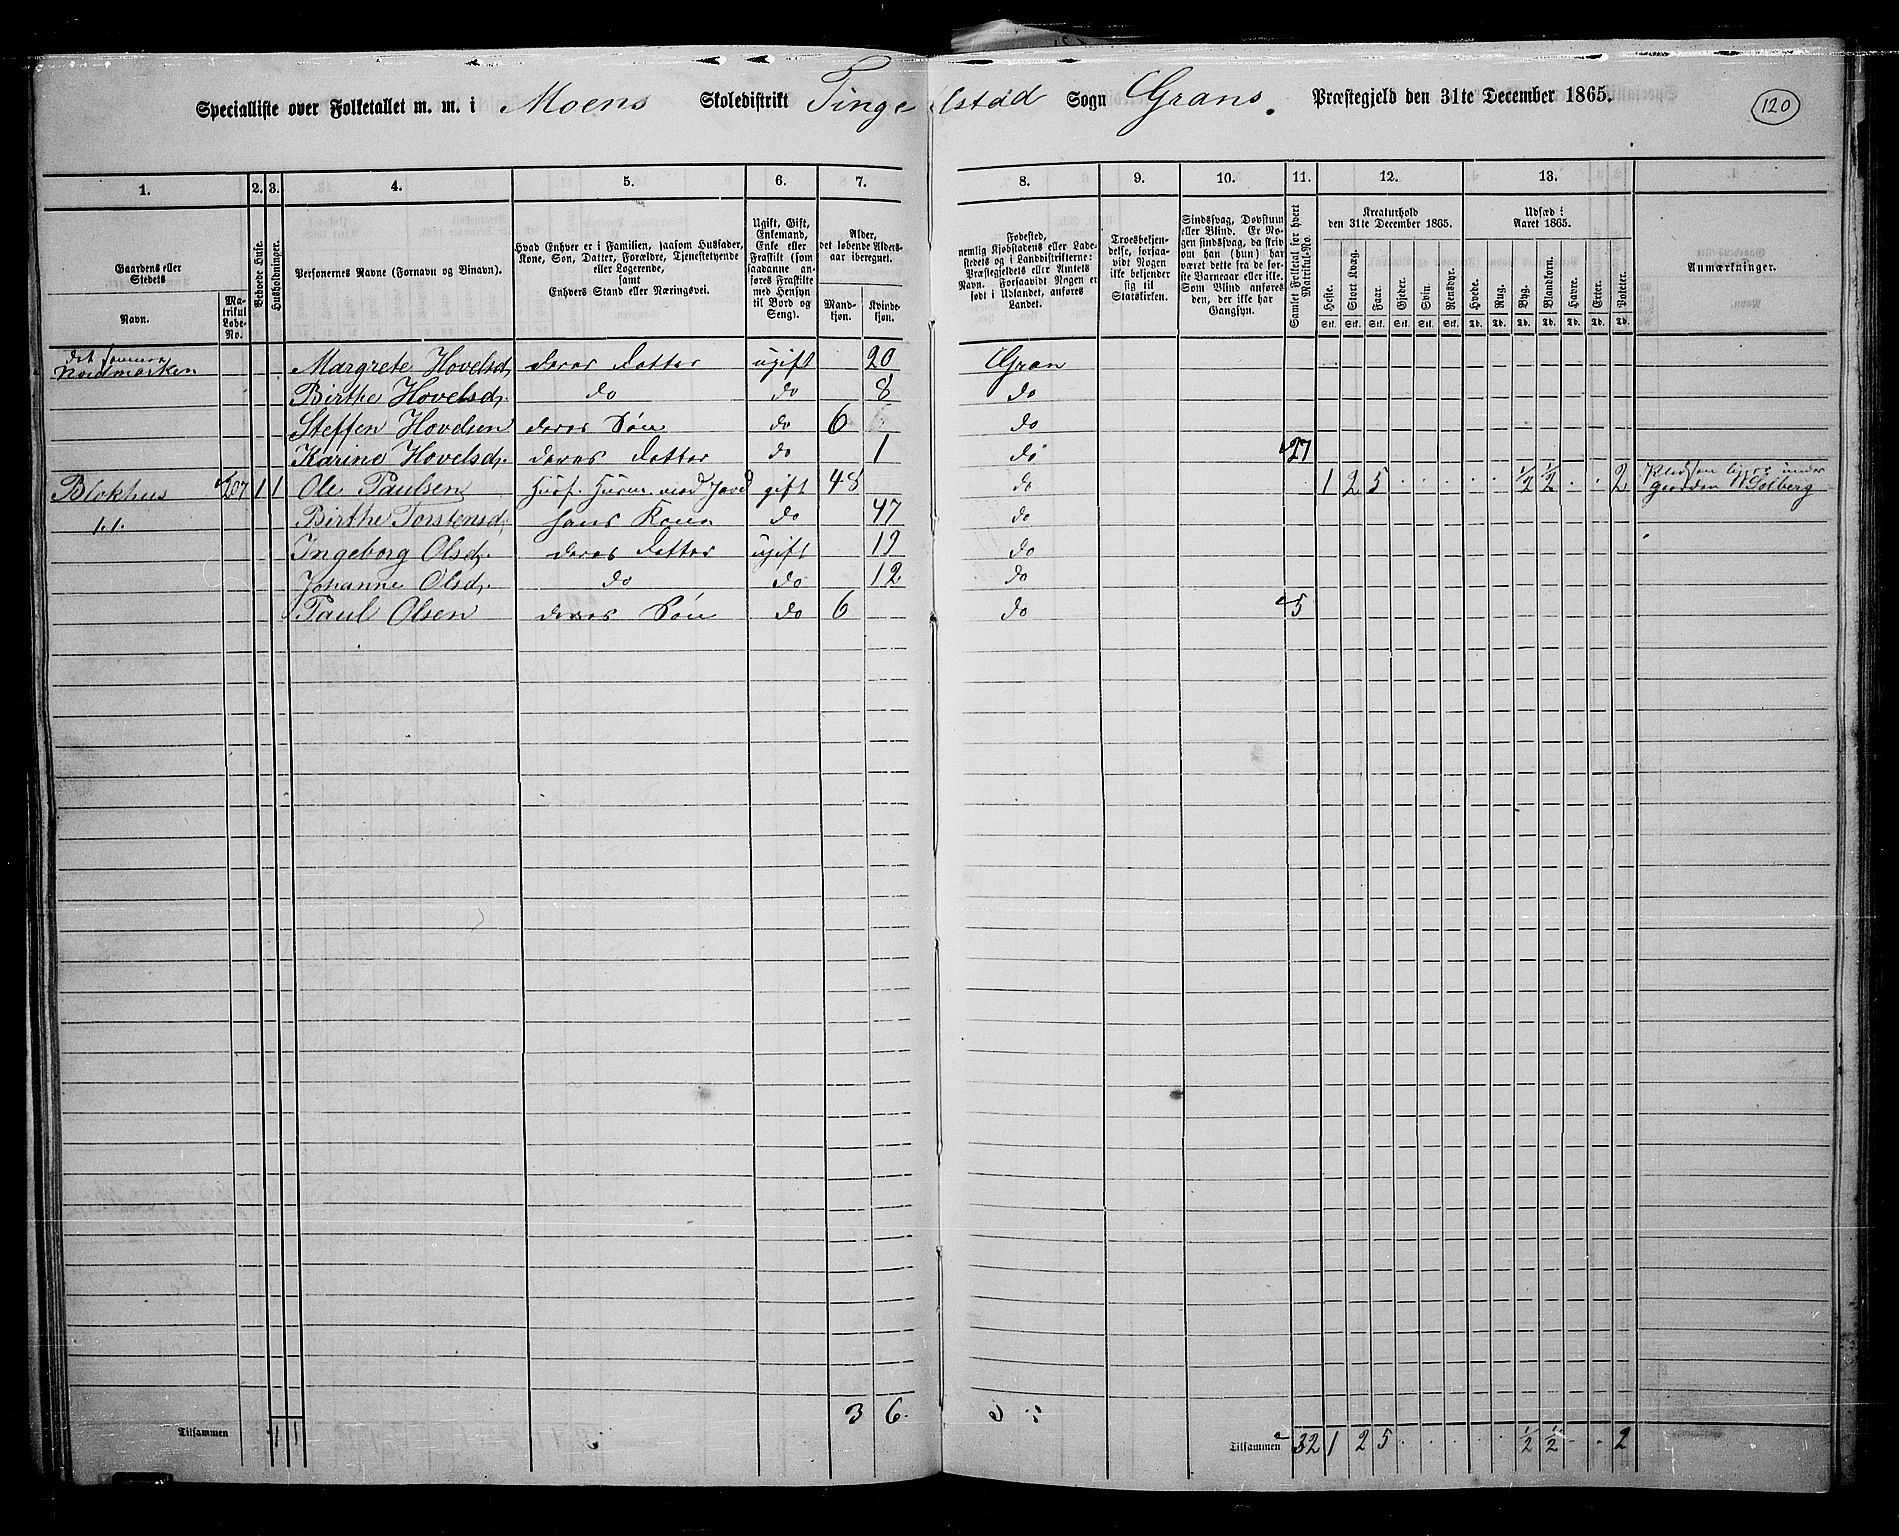 Specialliste over Folketallet m. m. i Moens Skoledistrikt Tingelstad Sogn Grans. Præstegjeld den 31te December 1865. 120
1. 2. 3. 4. 5. 6. 7. 8. 9. 10. 11. 12. 13.
Gaardens eller Stedets Navn. Matrikul Løbe-No. Beboede Huse. Husholdninger. Personernes Navne (Fornavn og Binavn). Hvad Enhver er i Familien, saasom Husfader, Kone, Søn, Datter, Forældre, Tjenestetyende eller Logerende, samt Enhvers Stand eller Næringsvei. Ugift, Gift, Enkemand, Enke eller Fraskilt (som saadanne anføres Fraskilte med Hensyn til Bord og Seng). Alder, det løbende Alders-aar iberegnet. Mandkjøn. Kvindekjøn. Fødested, nemlig Kjøbstadens eller Ladestedets og i Landdistrikterne: Præstegjeldets eller Amtets Navn. Forsaavidt Nogen er født i Udlandet, anføres Landet. Troesbekjendelse, forsaavidt Nogen ikke bekjender sig til Statskirken. Sindssvag, Døvstum eller Blind. Er Nogen sindssvag, da skriv om han (hun) har været dette fra de første Barneaar eller ikke. Som Blind anføres den, der ikke har Gangsyn. Samlet Folketal for hvert Matrikul-No. Kreaturhold den 31te December 1865. Udsæd i Aaret 1865. Anmærkninger.
Heste. Stort Kvæg. Faar. Gjeder. Svin. Rensdyr. Hvede. Rug. Byg. Blandkorn. Havre. Erter. Poteter.
Stk. Stk. Stk. Stk. Stk. Stk. Td. Td. Td. Td. Td. Td. Td.
det samme
Nordmarken Margrete Hovelsd. deres Datter ugift 20 Gran
Birthe Hovelsd. do do 8 do
Steffen Hovelsen deres Søn do 6 do
Karine Hovelsd. deres Datter do 1 do 27
Blokhus 207 1 1 Ole Paulsen Husf. Husm. med Jord gift 48 do 1 2 5 1/2 1/2 2 Pladsen ligger under Gaarden N Solberg
Birthe Torstensd. hans Kone do 47 do
Ingeborg Olsd. deres Datter ugift 19 do
Johanne Olsd. do do 12 do
Paul Olsen deres Søn do 6 do 5
3 6.
Tilsammen 1 1 Tilsammen 32 1 2 5 1/2 1/2 2